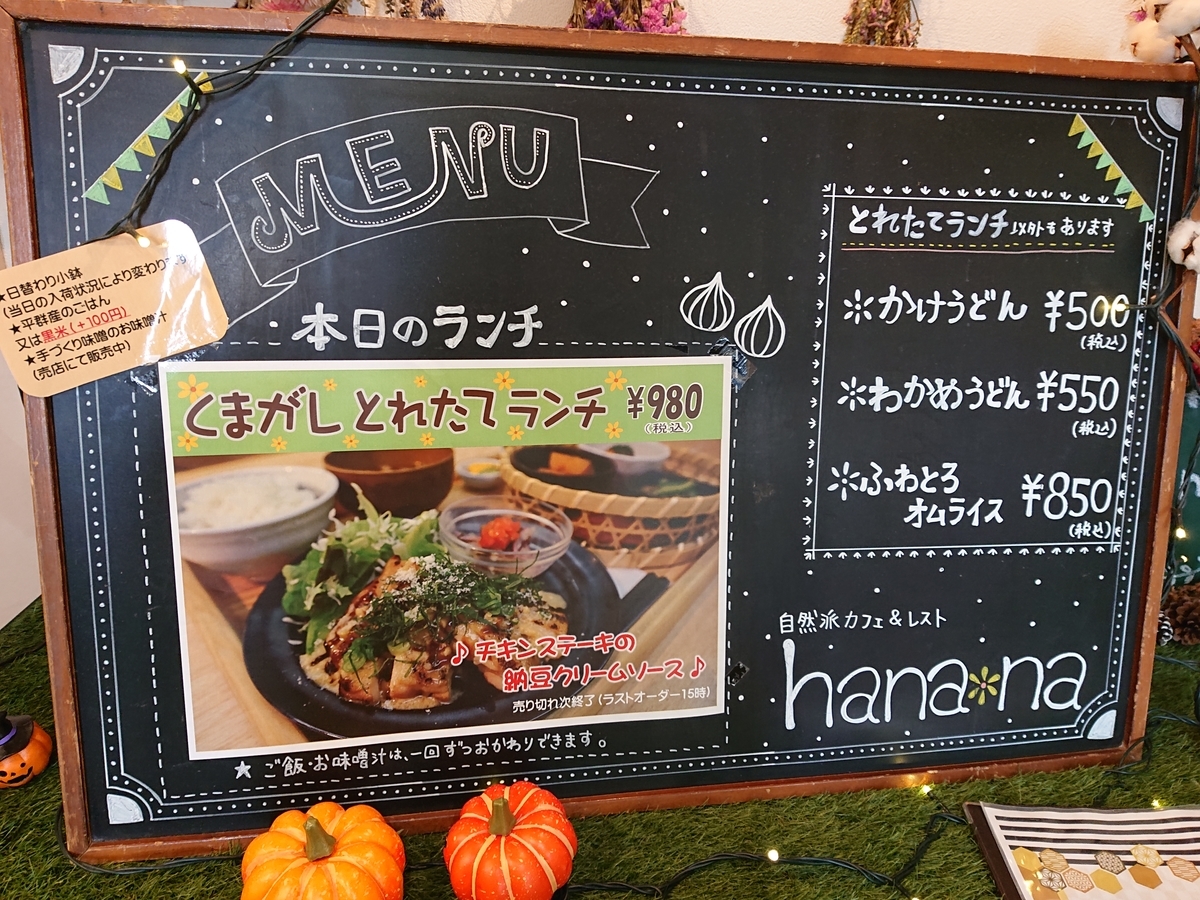 MENU
★日替わり小鉢
(当日の入荷状況により変わります
★平群産のごはん
又は黒米(+100円)
★手づくり味噌のお味噌汁
(売店にて販売中)
本日のランチ
くまがし とれたてランチ ¥980
(税込)
♪チキンステーキの
納豆クリームソース♪
売り切れ次終了(ラストオーダー15時)
★ ご飯・お味噌汁は、一回ずつおかわりできます。
とれたてランチ以外もあります
✲かけうどん ¥500
(税込)
✲わかめうどん ¥550
(税込)
✲ふわとろ
オムライス ¥850
(税込)
自然派カフェ&レスト
hana✲na